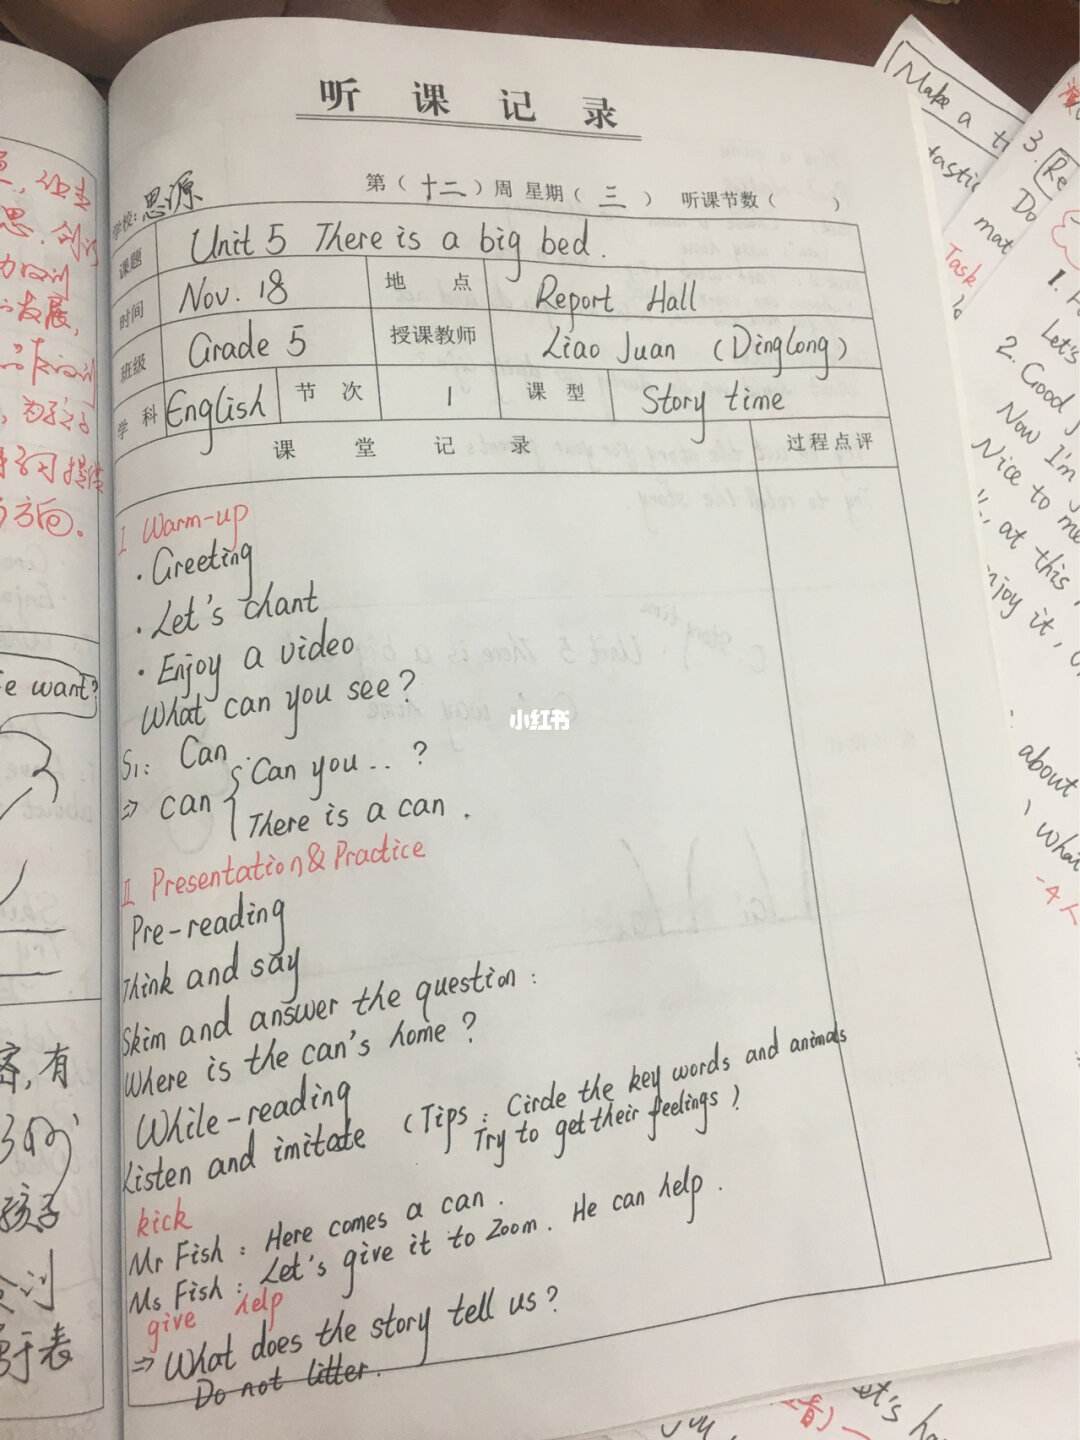 听课记录
第（十二）周 星期（三） 听课节数（ ）
学校：思源
课题 Unit 5 There is a big bed.
时间 Nov. 18 地点 Report Hall
班级 Grade 5 授课教师 Liao Juan (Dinglong)
学科 English 节次 1 课型 Story time
课堂记录 过程点评
I Warm-up
· Greeting
· Let's chant
· Enjoy a video
What can you see?
S1: Can
⇒ can { · Can you... ?
There is a can.
II Presentation & Practice
Pre-reading
Think and say
Skim and answer the question:
Where is the can's home?
While-reading
Listen and imitate (Tips: Circle the key words and animals
Try to get their feelings)
kick
Mr Fish: Here comes a can.
Ms Fish: Let's give it to Zoom. He can help.
give help
⇒ What does the story tell us?
Do not litter.
小红书
发展,
方向。
e want?
有
孩子
表
Make a
tastic
mat
3. Re
Do
Task
1.
Let's
2. Good
Now I'm
Nice to me
at this
njoy it,
about
What
-4人
et's ha